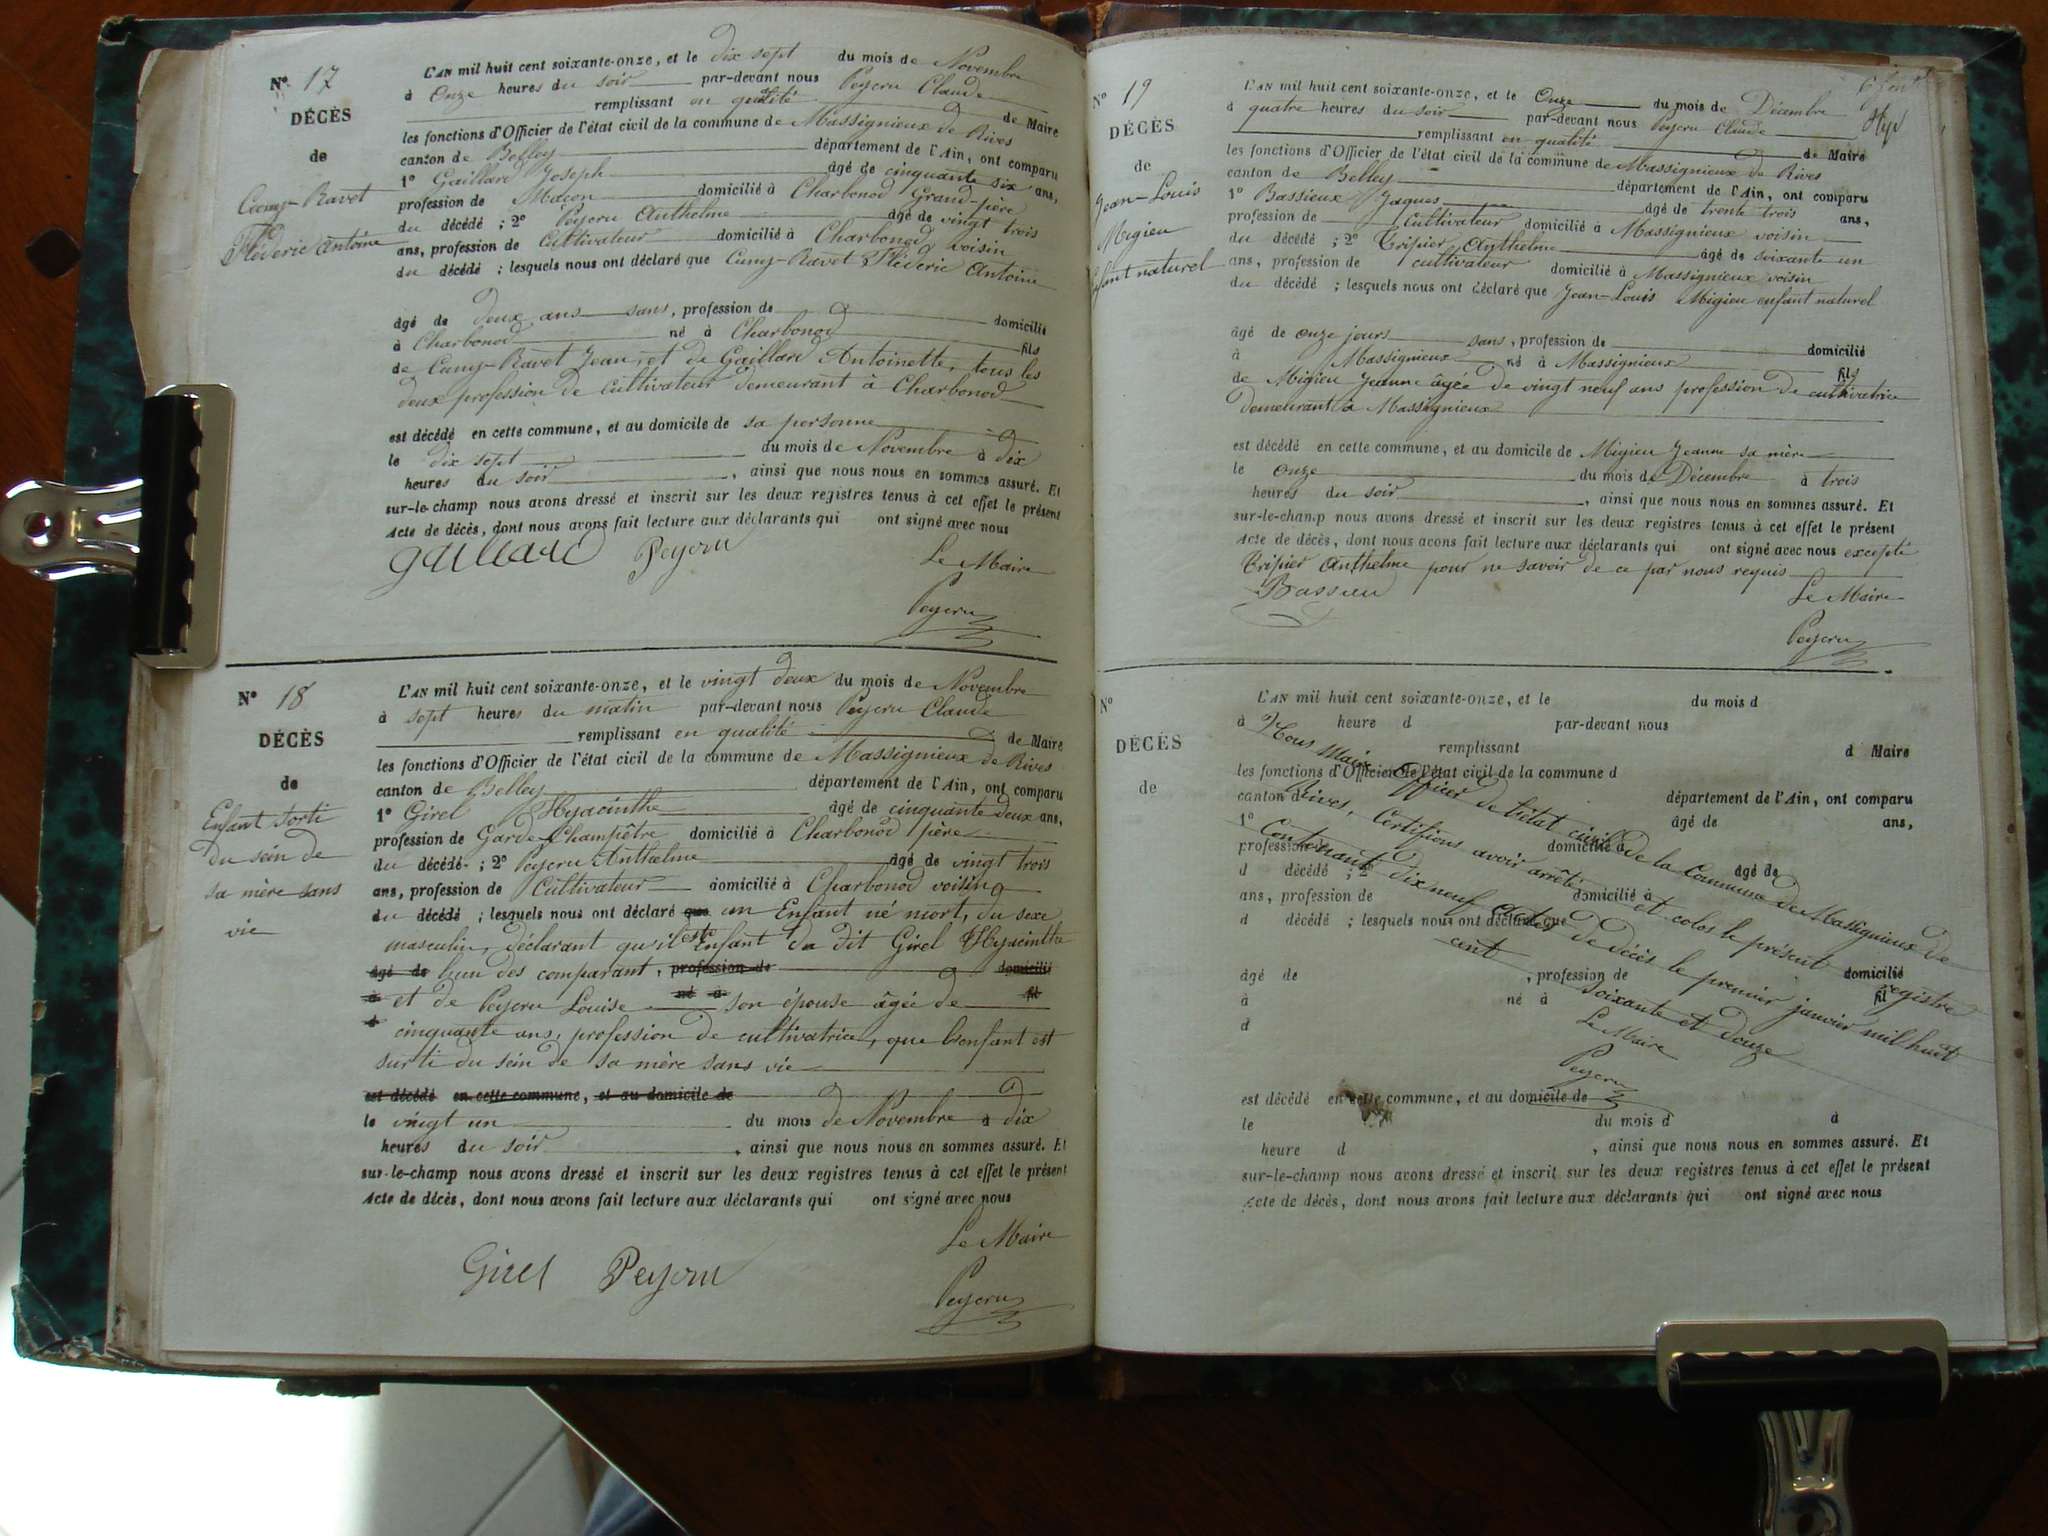 N° 17
DÉCÈS
de
Cumy-Ravet
Fléderic Antoine
L'AN mil huit cent soixante-onze, et le dix sept du mois de Novembre
à Onze heures du soir par-devant nous Peycru Claude
remplissant en qualité de Maire
les fonctions d'Officier de l'état civil de la commune de Massignieux de Rives
canton de Belley département de l'Ain, ont comparu
1° Gaillard Joseph âgé de cinquante six ans,
profession de Maçon domicilié à Charbonod Grand-père
du décédé ; 2° Peycru Anthelme âgé de vingt trois
ans, profession de Cultivateur domicilié à Charbonod voisin
du décédé ; lesquels nous ont déclaré que Cumy-Ravet Fléderic Antoine
âgé de deux ans sans, profession de domicilié
à Charbonod né à Charbonod fils
de Cumy-Ravet Jean, et de Gaillard Antoinette, tous les
deux profession de cultivateur demeurant à Charbonod
est décédé en cette commune, et au domicile de sa personne
le dix sept du mois de Novembre à dix
heures du soir, ainsi que nous nous en sommes assuré. Et
sur-le-champ nous avons dressé et inscrit sur les deux registres tenus à cet effet le présent
Acte de décès, dont nous avons fait lecture aux déclarants qui ont signé avec nous
Gaillard Peycru Le Maire
Peycru
N° 18
DÉCÈS
de
Enfant sorti
du sein de
sa mère sans
vie
L'AN mil huit cent soixante-onze, et le vingt deux du mois de Novembre
à sept heures du matin par-devant nous Peycru Claude
remplissant en qualité de Maire
les fonctions d'Officier de l'état civil de la commune de Massignieux de Rives
canton de Belley département de l'Ain, ont comparu
1° Girel Hyacinthe âgé de cinquante deux ans,
profession de Garde Champêtre domicilié à Charbonod père
du décédé ; 2° Peycru Anthelme âgé de vingt trois
ans, profession de Cultivateur domicilié à Charbonod voisin
du décédé ; lesquels nous ont déclaré que un Enfant né mort, du sexe
masculin, déclarant qu'il est Enfant du dit Girel Hyacinthe
âgé de l'un des comparant, profession de domicilié
à et de Peycru Louise né à son épouse âgée de fil
d cinquante ans, profession de cultivatrice, que l'enfant est
surti du sein de sa mère sans vie
est décédé en cette commune, et au domicile de
le vingt un du mois de Novembre à dix
heures du soir, ainsi que nous nous en sommes assuré. Et
sur-le-champ nous avons dressé et inscrit sur les deux registres tenus à cet effet le présent
Acte de décès, dont nous avons fait lecture aux déclarants qui ont signé avec nous
Le Maire
Girel Peycru
Peycru
N° 19
DÉCÈS
de
Jean-Louis
Migieu
enfant naturel
L'AN mil huit cent soixante-onze, et le Onze du mois de Décembre
à quatre heures du soir par-devant nous Peycru Claude
remplissant en qualité de Maire
les fonctions d'Officier de l'état civil de la commune de Massignieux de Rives
canton de Belley département de l'Ain, ont comparu
1° Bassieux Jaques âgé de trente trois ans,
profession de Cultivateur domicilié à Massignieux voisin
du décédé ; 2° Tripier Anthelme âgé de soixante un
ans, profession de cultivateur domicilié à Massignieux voisin
du décédé ; lesquels nous ont déclaré que Jean-Louis Migieu enfant naturel
âgé de onze jours sans, profession de domicilié
à Massignieux né à Massignieux fils
de Migieu Jeanne âgée de vingt neuf ans profession de cultivatrice
demeurant à Massignieux
est décédé en cette commune, et au domicile de Migieu Jeanne sa mère
le onze du mois de Décembre à trois
heures du soir, ainsi que nous nous en sommes assuré. Et
sur-le-champ nous avons dressé et inscrit sur les deux registres tenus à cet effet le présent
Acte de décès, dont nous avons fait lecture aux déclarants qui ont signé avec nous excepté
Tripier Anthelme pour ne savoir de ce par nous requis
Bassieu Le Maire
Peycru
N°
DÉCÈS
de
L'AN mil huit cent soixante-onze, et le du mois d
à heure d par-devant nous
remplissant d Maire
les fonctions d'Officier de l'état civil de la commune d
canton d département de l'Ain, ont comparu
1° âgé de ans,
profession domicilié à
d décédé ; 2° âgé de
ans, profession de domicilié à
d décédé ; lesquels nous ont déclaré que
âgé de , profession de domicilié
à né à fil
d
Nous Maire Officier de l'état civil de la Commune de Massignieux de
Rives, Certifions avoir arrêté et colos le présent registre
Contenant dix neuf actes de décès le premier janvier mil huit
cent soixante et douze
Le Maire
Peycru
est décédé en cette commune, et au domicile de
le du mois d à
heure d , ainsi que nous nous en sommes assuré. Et
sur-le-champ nous avons dressé et inscrit sur les deux registres tenus à cet effet le présent
Acte de décès, dont nous avons fait lecture aux déclarants qui ont signé avec nous